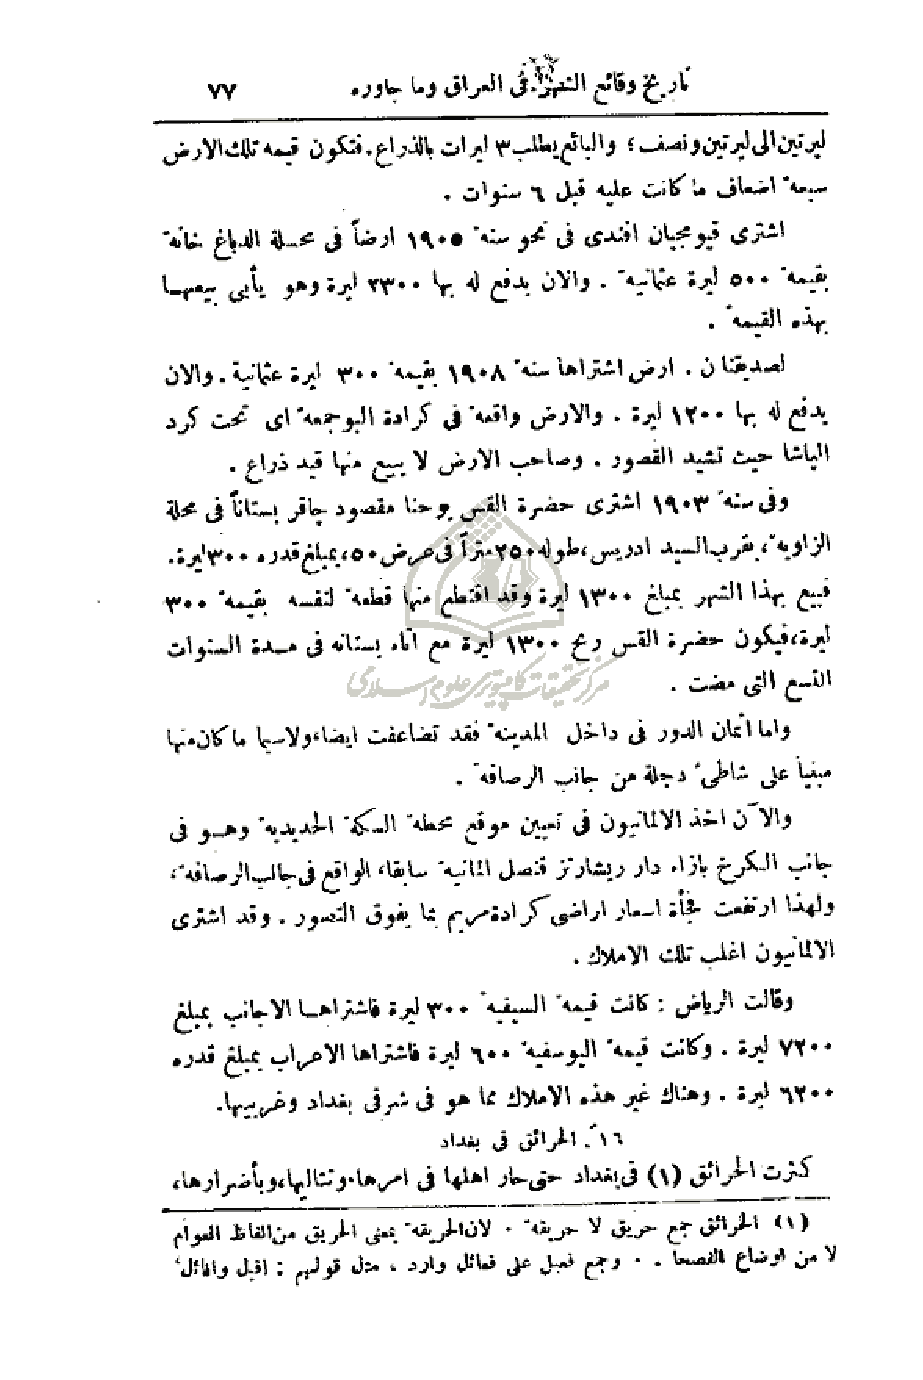 تاريخ وقائع الشهر في العراق وما جاوره ٧٧
ليرتين الى ليرتين ونصف ؛ والبائع يطلب ٣ ليرات بالذراع . فتكون قيمة تلك الارض
سبعة اضعاف ما كانت عليه قبل ٦ سنوات .
اشترى قيومجيان افندى فى نحو سنة ١٩٠٥ ارضاً فى محلة الدباغ خانة
بقيمة ٥٠٠ ليرة عثمانية . والان يدفع له بها ٢٣٠٠ ليرة وهو يأبى بيعهـا
بهذه القيمة .
لصديقنا ن . ارض اشتراها سنة ١٩٠٨ بقيمة ٣٠٠ ليرة عثمانية . والان
يدفع له بها ١٢٠٠ ليرة . والارض واقعة فى كرادة البو جمعة اى تحت كرد
الپاشا حيث تشيد القصور . وصاحب الارض لا يبيع منها قيد ذراع .
وفى سنة ١٩٠٣ اشترى حضرة القس يوحنا مقصود جاقر بستاناً فى محلة
الزاوية ، بقرب السيد ادريس ، طوله ٢٥٠ متراً فى عرض ٥٠ ، بمبلغ قدره ٣٠٠ ليرة .
فبيع بهذا الشهر بمبلغ ١٣٠٠ ليرة وقد اقتطع منها قطعة لنفسه بقيمة ٣٠٠
ليرة ، فيكون حضرة القس ربح ١٣٠٠ ليرة مع اتاء بستانه فى مـدة السنوات
التسع التى مضت .
واما أثمان الدور فى داخل المدينة فقد تضاعفت ايضا ، ولاسيما ما كان منها
مبنياً على شاطىء دجلة من جانب الرصافة .
والآن اخذ الالمانيون فى تعيين موقع محطة السكة الحديدية وهـو فى
جانب الكرخ بازاء دار ريشارتز قنصل المانية سابقا ، الواقع فى جانب الرصافة ،
ولهذا ارتفعت فجأة اسعار اراضى كرادة مريم بما يفوق التصور . وقد اشترى
الالمانيون اغلب تلك الاملاك .
وقالت الرياض : كانت قيمة السيفية ٣٠٠ ليرة فاشتراهـا الاجانب بمبلغ
٧٢٠٠ ليرة . وكانت قيمة اليوسفية ٦٠٠ ليرة فاشتراها الاعراب بمبلغ قدره
٦٢٠٠ ليرة . وهناك غير هذه الاملاك مما هو فى شرقى بغداد وغربيها .
١٦ . الحرائق فى بغداد
كثرت الحرائق (١) فى بغداد حتى حار اهلها فى امرها ، وتتاليها ، وبأضرارها ،
(١) الحرائق جمع حريق لا حريقة . لان الحريقة بمعنى الحريق من الفاظ العوام
لا من اوضاع الفصحا . وجمع فعيل على فعائل وارد ، مثل قولهم : افيل وافائل
مركز تحقيقات كامپيوترى علوم اسلامى